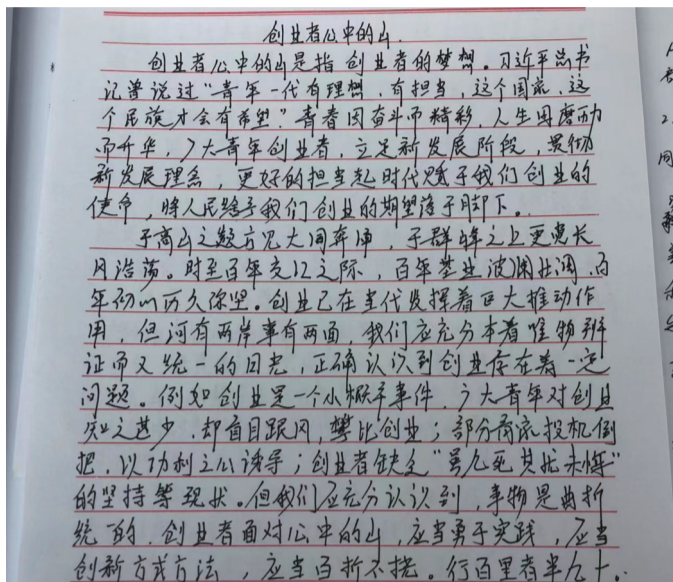 创业者心中的山
创业者心中的山是指创业者的梦想。习近平总书
记曾说过"青年一代有理想,有担当,这个国家,这
个民族才会有希望"青春因奋斗而精彩,人生因磨砺
而升华,广大青年创业者,立足新发展阶段,贯彻
新发展理念,更好的担当起时代赋予我们创业的
使命,将人民给予我们创业的期望落于脚下。
于高山之巅方见大河奔涌,于群峰之上更觉长
风浩荡。时至百年交汇之际,百年基业波澜壮阔,百
年初心历久弥坚。创业已在当代发挥着巨大推动作
用,但河有两岸事有两面,我们应充分本着唯物辨
证而又统一的目光,正确认识到创业存在着一定
问题。例如创业是一个小概率事件,广大青年对创业
知之甚少,却盲目跟风,攀比创业;部分商家投机倒
把,以功利之心诱导;创业者缺乏"虽九死其犹未悔"
的坚持等现状。但我们应充分认识到,事物是曲折
统一的,创业者面对心中的山,应当勇于实践,应当
创新方式方法,应当百折不挠。行百里者半九十.